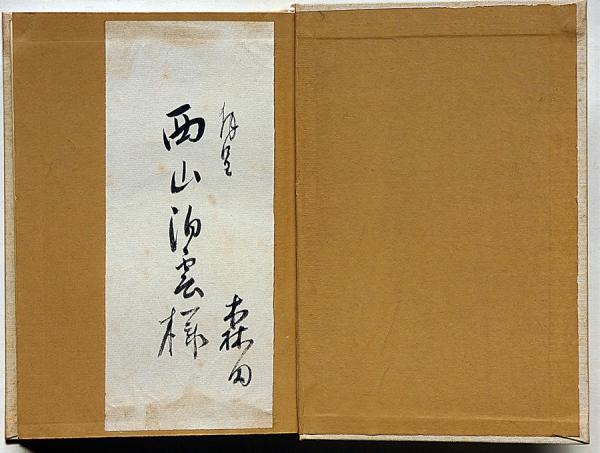 拝呈
西山泊雲様
森田